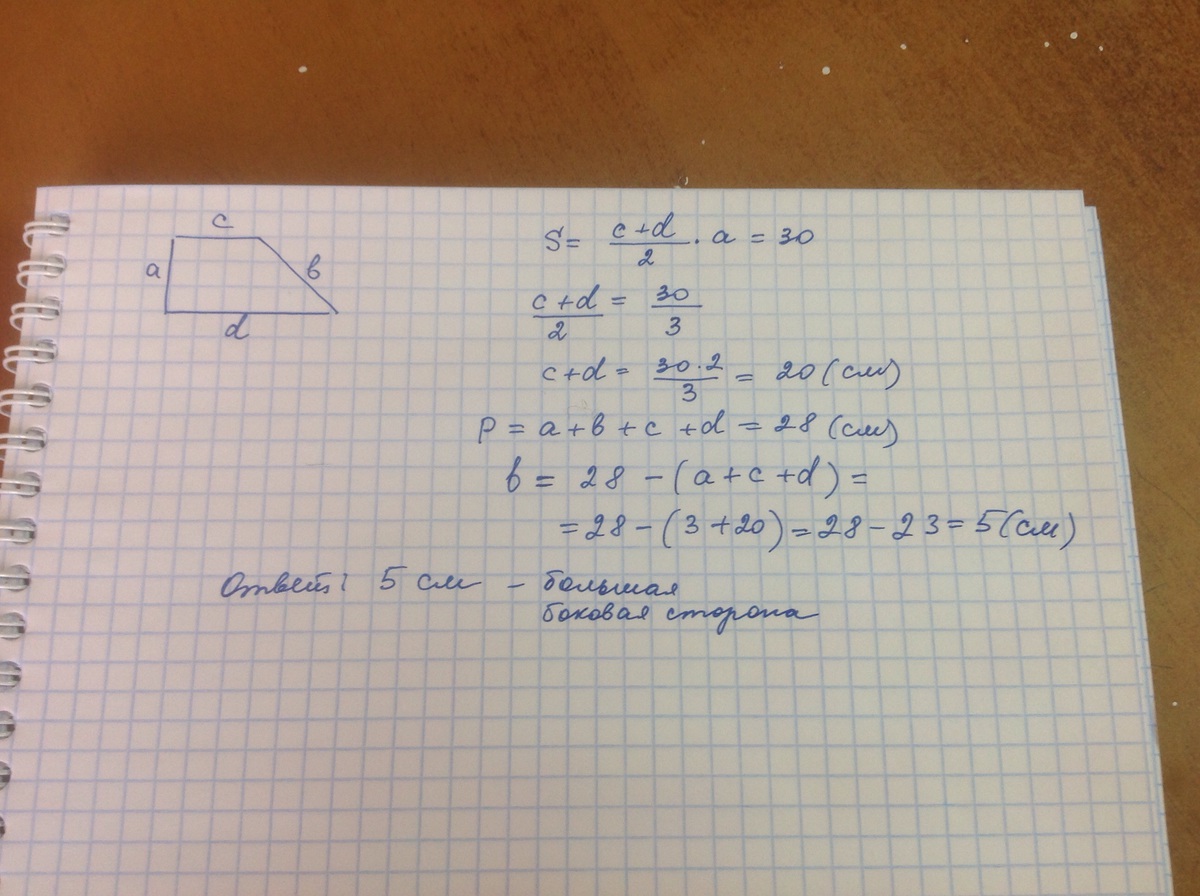 c
a
в
d
S= (c+d)/2 · a = 30
(c+d)/2 = 30/3
c+d = (30·2)/3 = 20 (см)
P = a+в+c+d = 28 (см)
в = 28 - (a+c+d) =
= 28 - (3+20) = 28 - 23 = 5 (см)
Ответ: 5 см - большая
боковая сторона